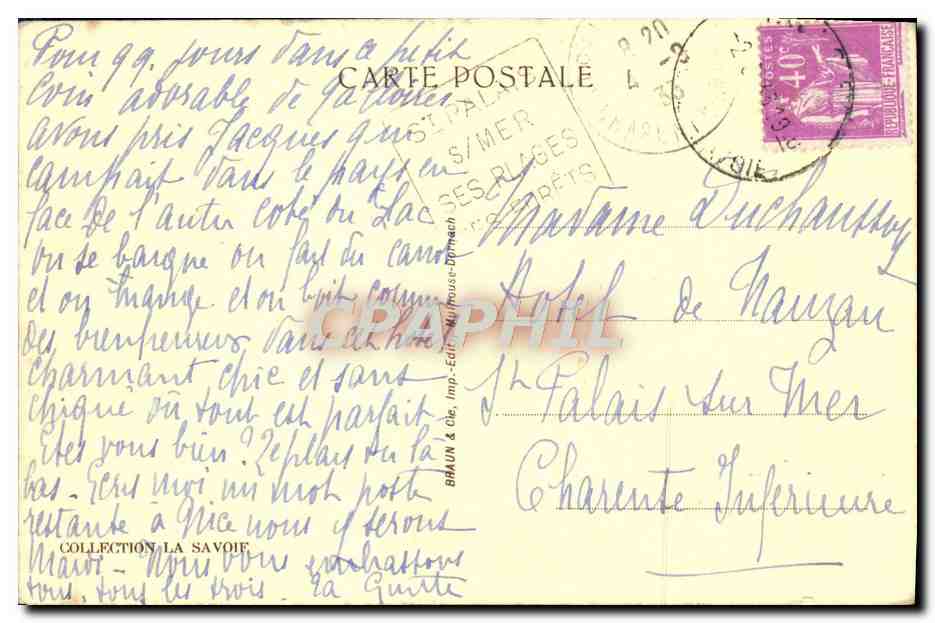 CARTE POSTALE
Pour qq. jours dans ce petit
coin adorable de Talloires
avons pris Jacques qui
campait dans le pays en
face de l'autre coté du Lac
on se baigne on fait du canot
et on mange et on boit comme
des bienheureux dans cet hotel
charmant chic et sans
chiqué où tout est parfait -
Etes vous bien? Te plais tu là
bas - Ecris moi un mot poste
restante à Nice nous y serons
Mardi - Nous vous embrassons
tous, tous les trois.
COLLECTION LA SAVOIE
BRAUN & Cie, Imp.-Edit., Mulhouse-Dornach
ST PALAIS
S/MER
SES PLAGES
FORÊTS
8 20
POSTES
40c
REPUBLIQUE-FRANÇAISE
Madame Duchaussoy
Hotel de Nauzan
St Palais sur Mer
Charente Inférieure
CPAPHIL